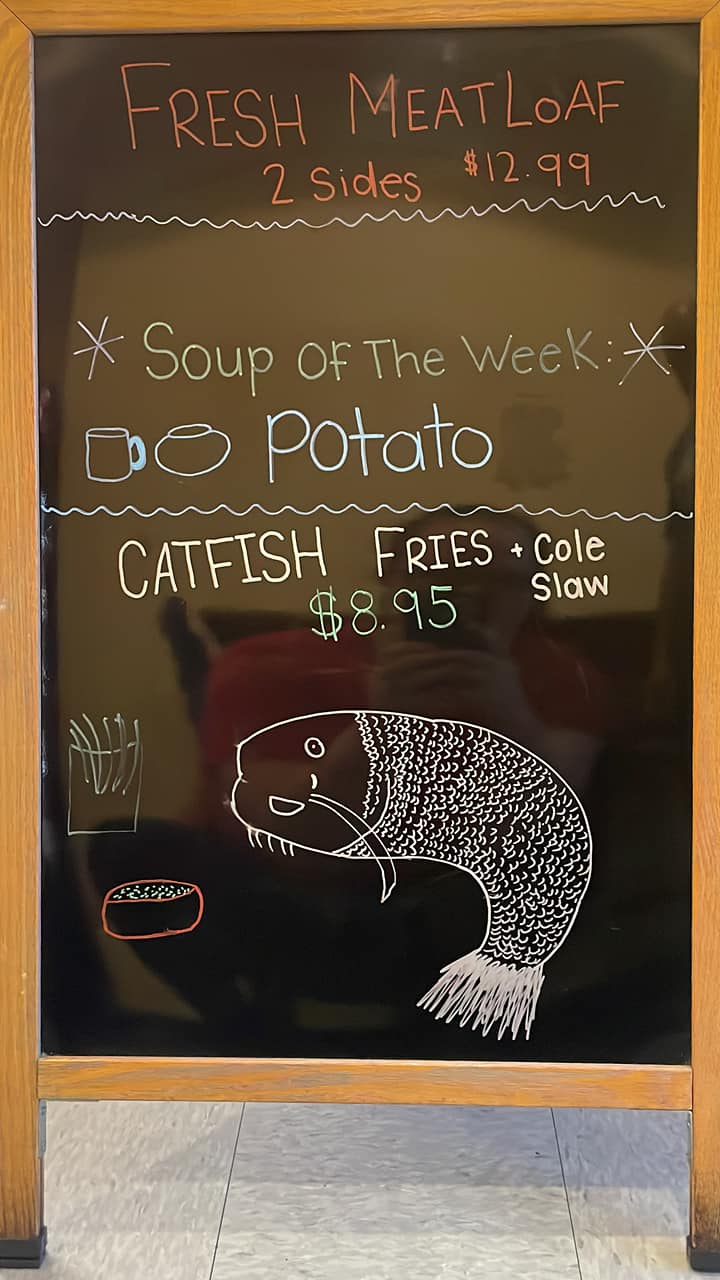 FRESH MEATLOAF
2 Sides $12.99
* Soup Of The Week: *
Potato
CATFISH FRIES + Cole
Slaw
$8.95